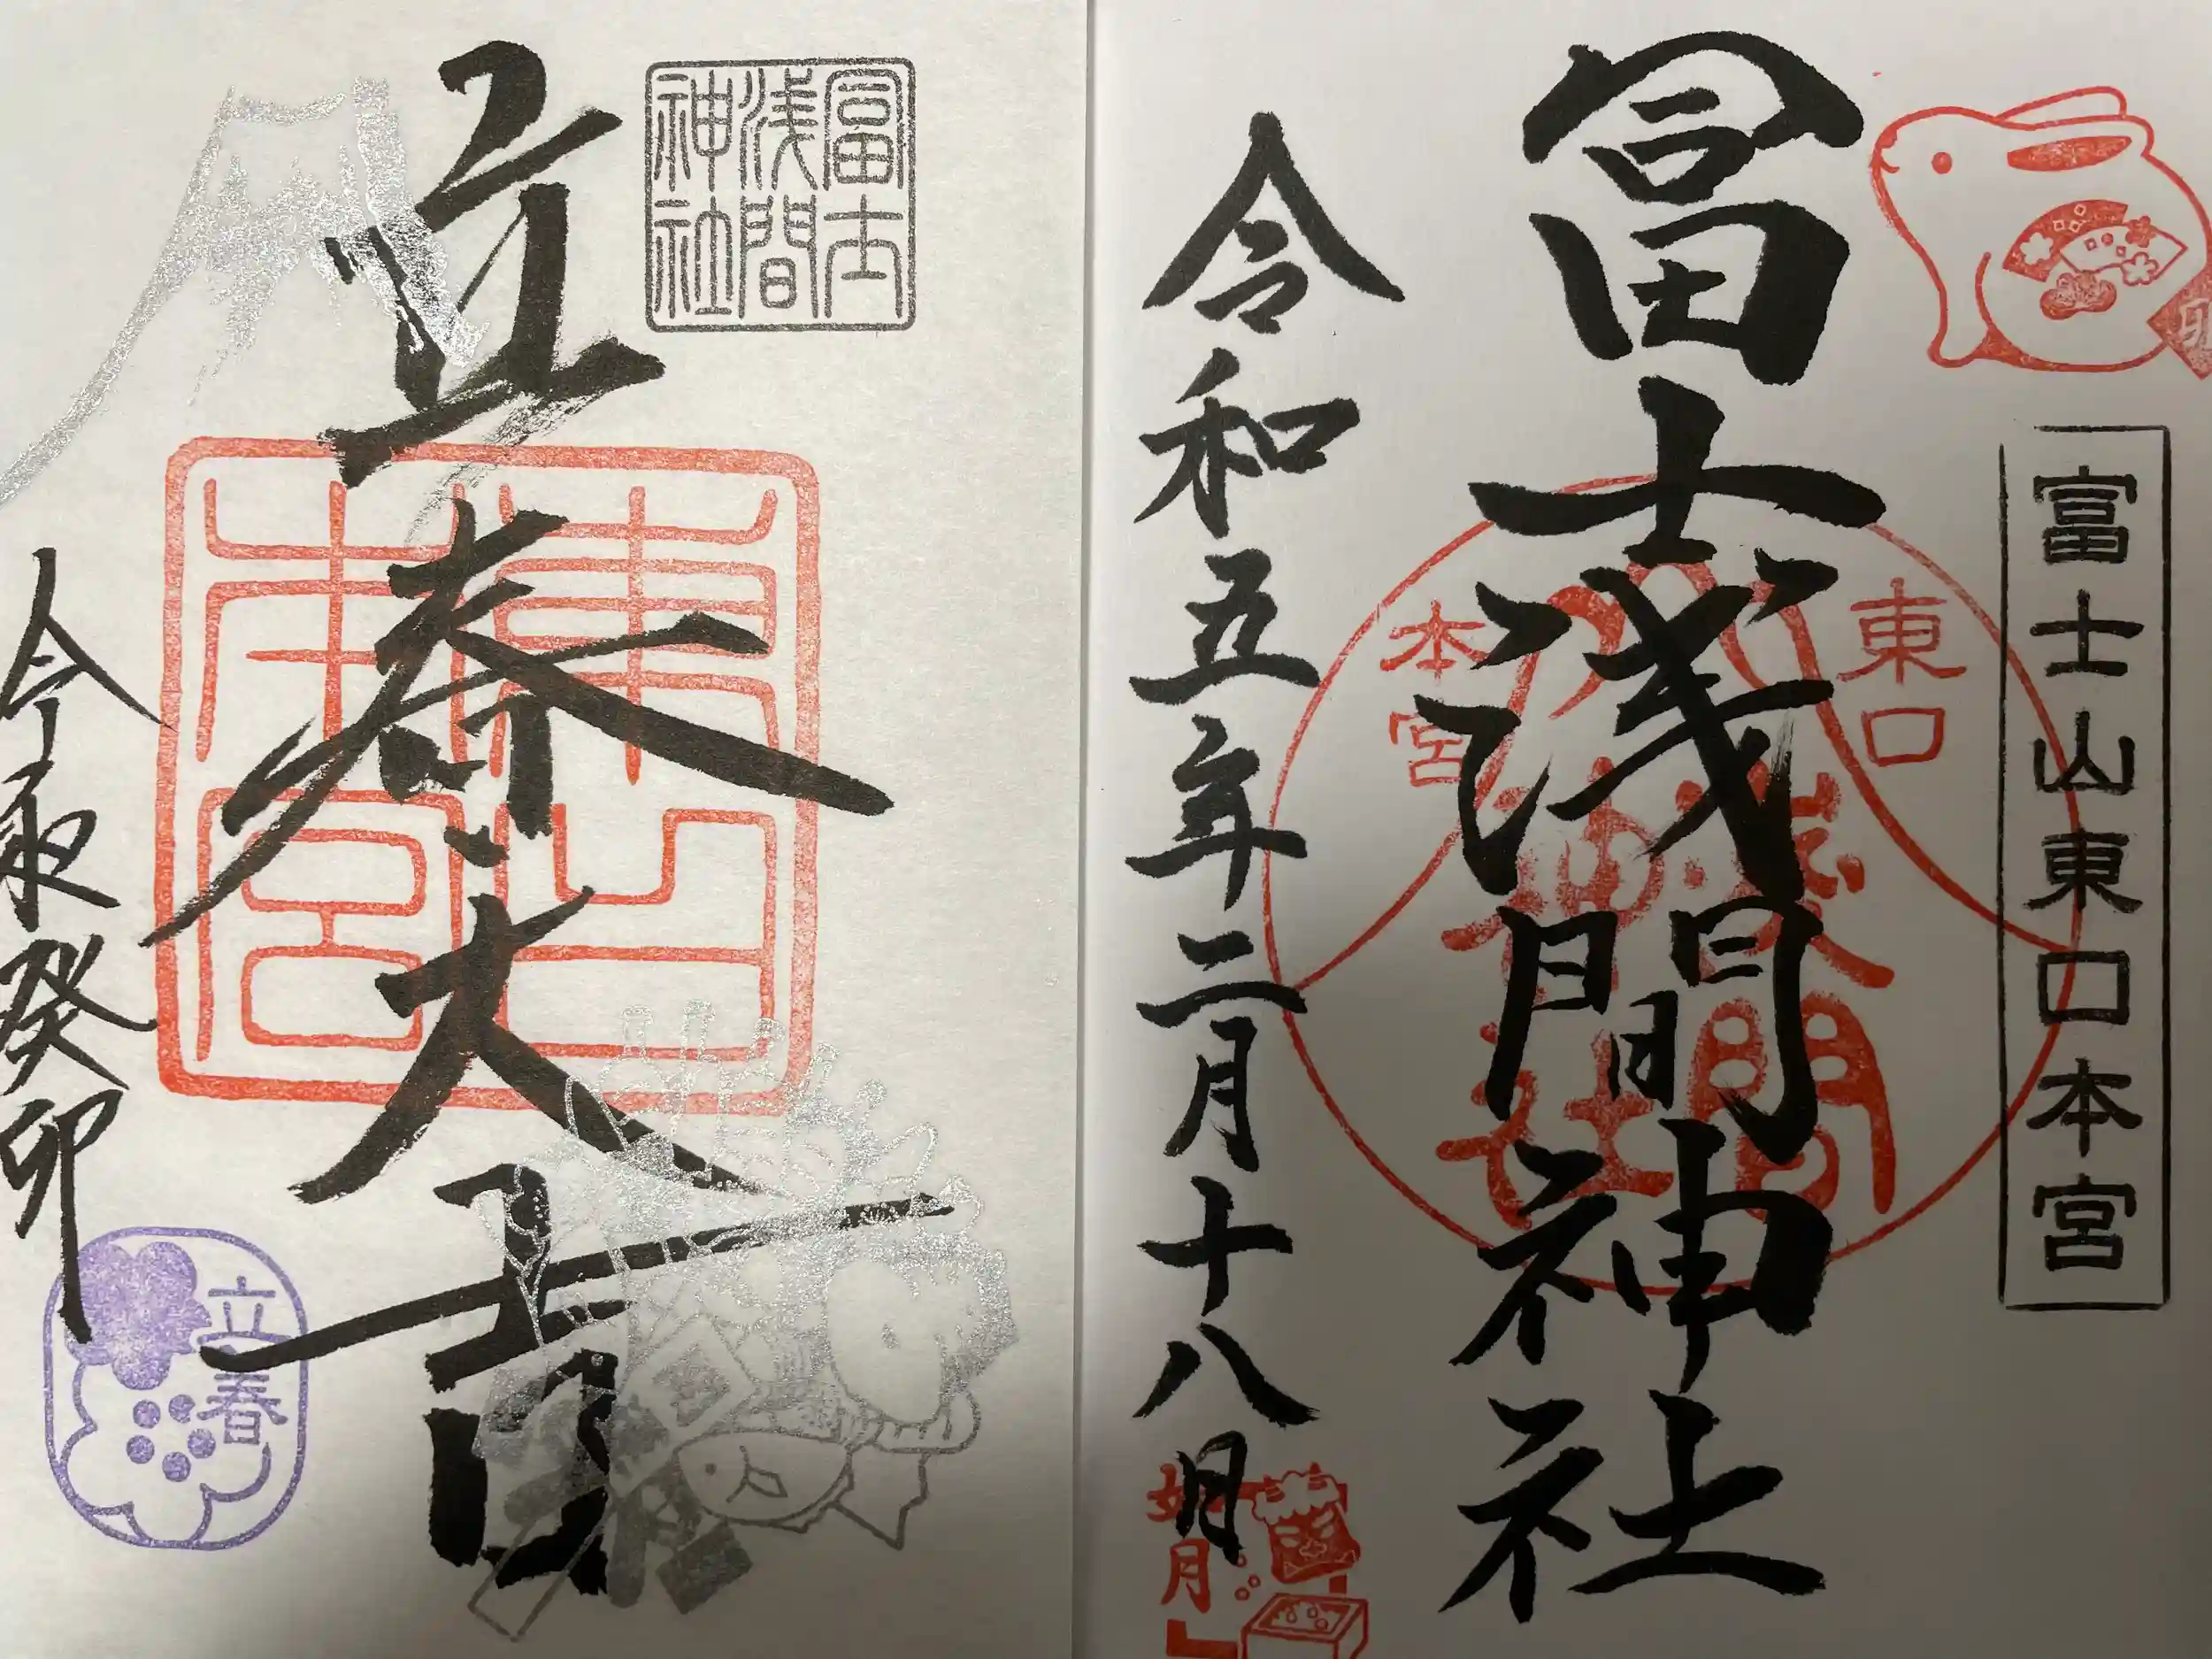 卯
富士山東口本宮
冨士浅間神社
東口
本宮
浅間
神社
令和五年二月十八日
如月
冨士
浅間
神社
立春大吉
東口
本宮
令和癸卯
立春